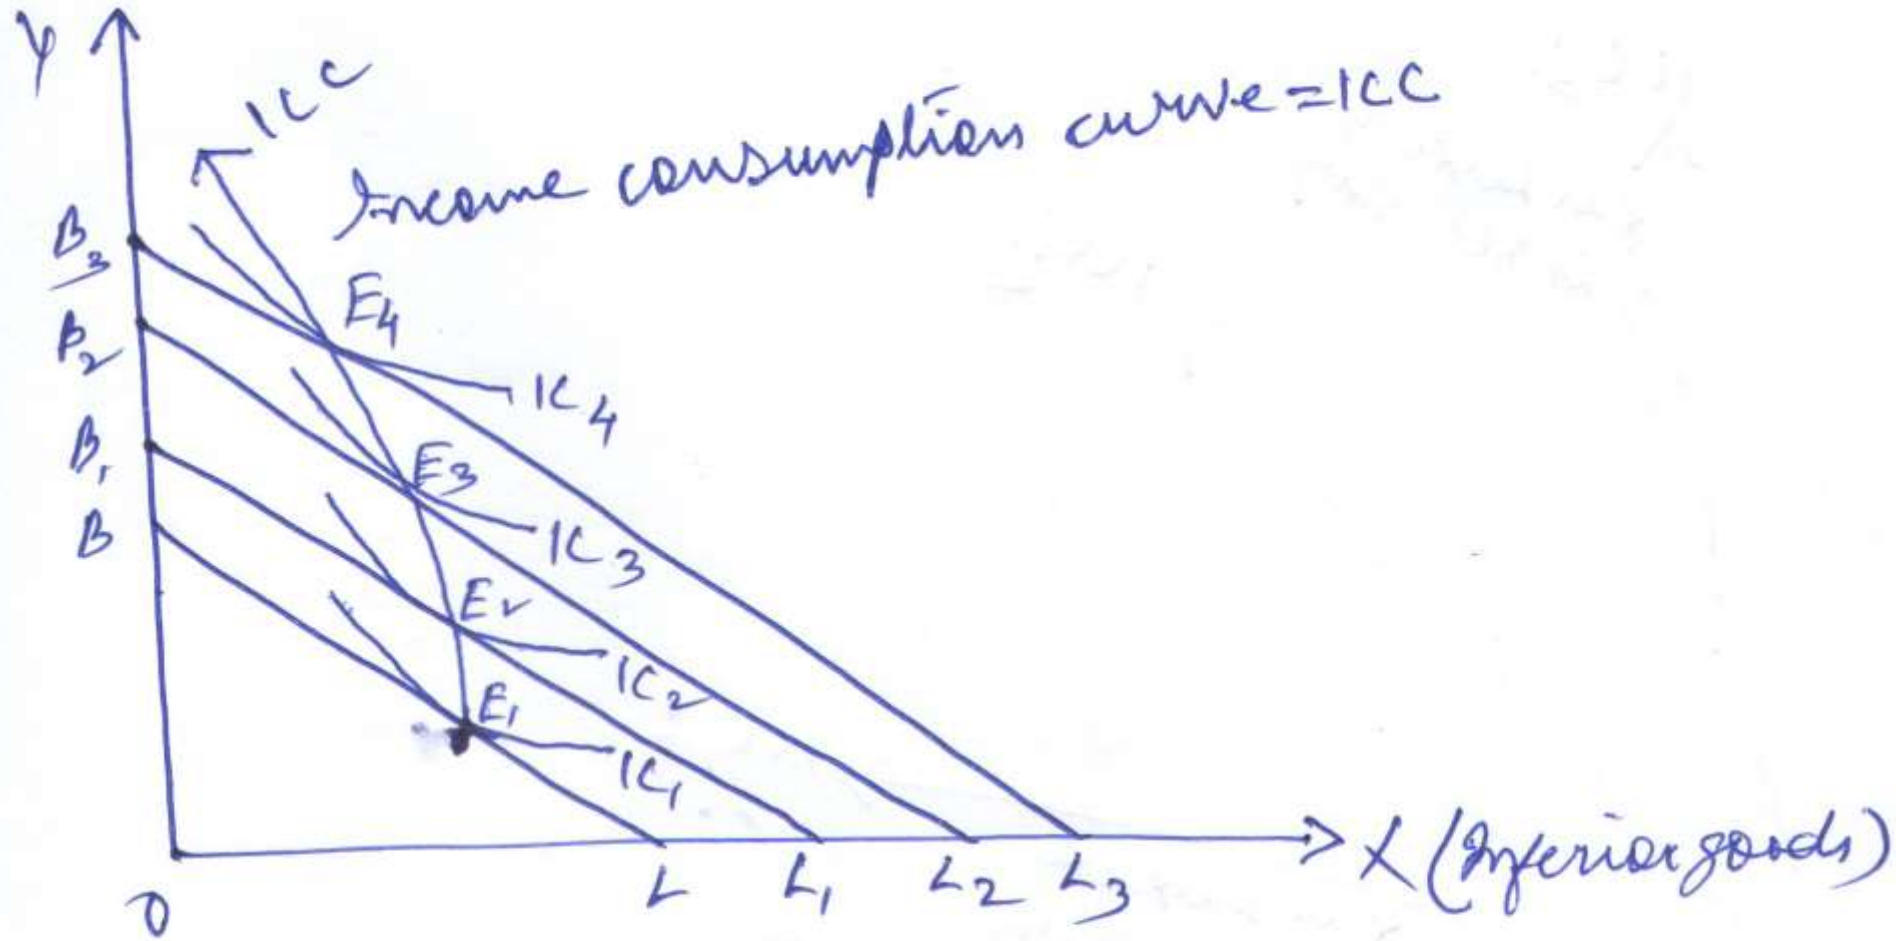 Y
ICC
Income consumption curve = ICC
B3
E4
B2
IC4
B1
E3
B
IC3
E2
IC2
E1
IC1
O
L
L1
L2
L3
X (Inferior goods)